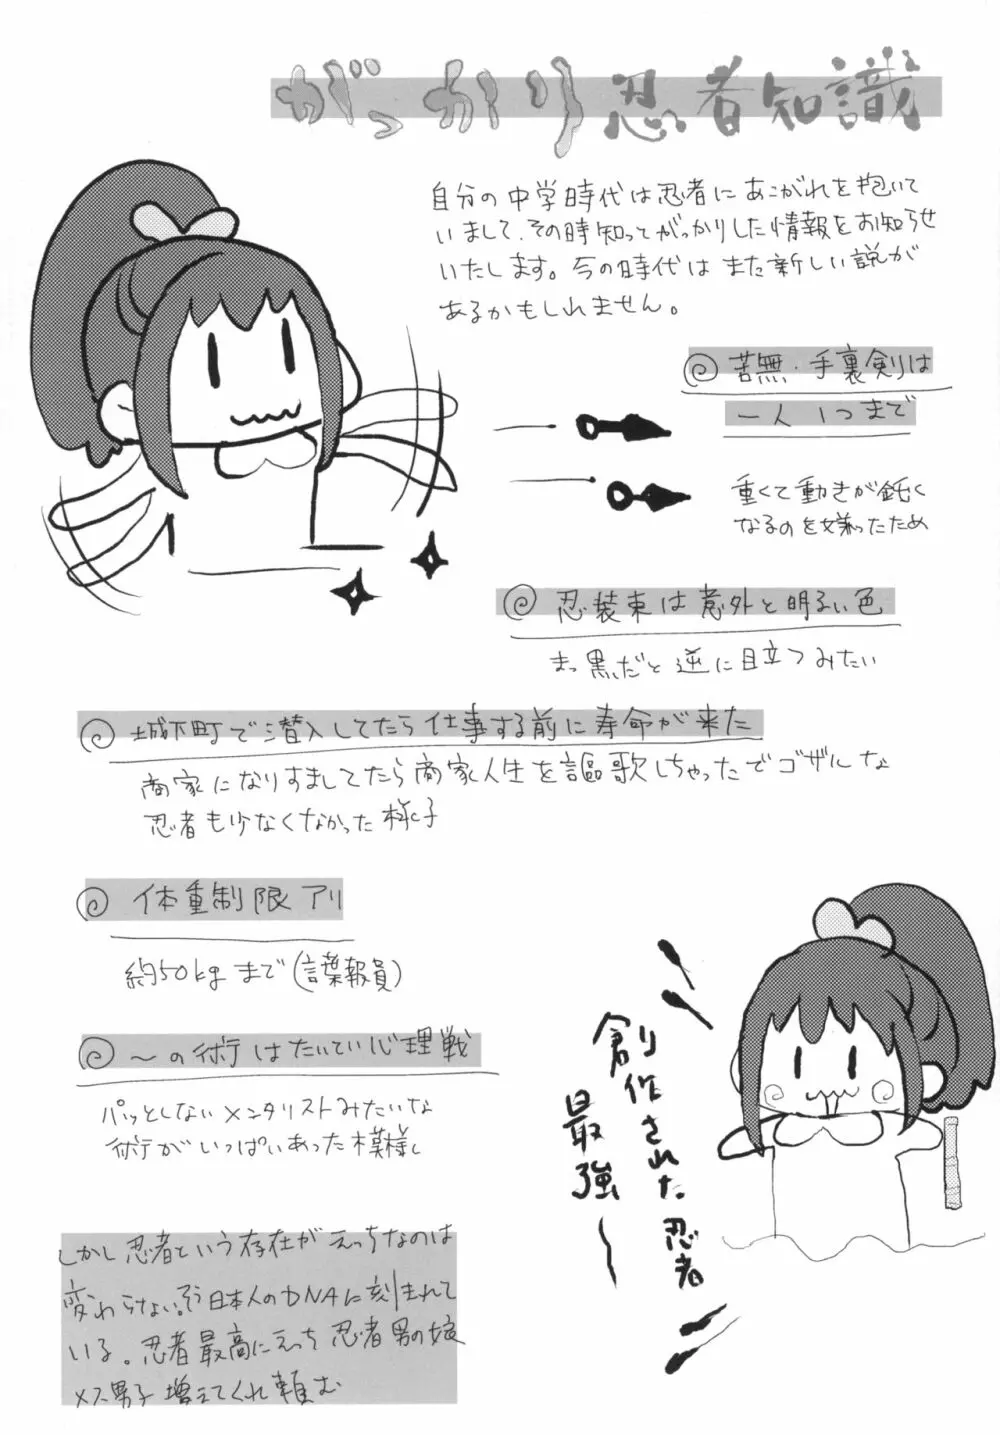 がっかり忍者知識
自分の中学時代は忍者にあこがれを抱いて
いまして、その時知ってがっかりした情報をお知らせ
いたします。今の時代はまた新しい説が
あるかもしれません。
苦無・手裏剣は
一人1つまで
重くて動きが鈍く
なるのを嫌ったため
忍装束は意外と明るい色
まっ黒だと逆に目立つみたい
城下町で潜入してたら仕事する前に寿命が来た
商家になりすましてたら商家人生を謳歌しちゃったでゴザルな
忍者も少なくなかった様子
体重制限アリ
約50kgまで(諜報員)
〜の術はたいてい心理戦
パッとしないメンタリストみたいな
術がいっぱいあった模様
創作された忍者
最強〜
しかし忍者という存在がえっちなのは
変わらない。そう日本人のDNAに刻まれて
いる。忍者最高にえっち 忍者男の娘
メス男子増えてくれ頼む